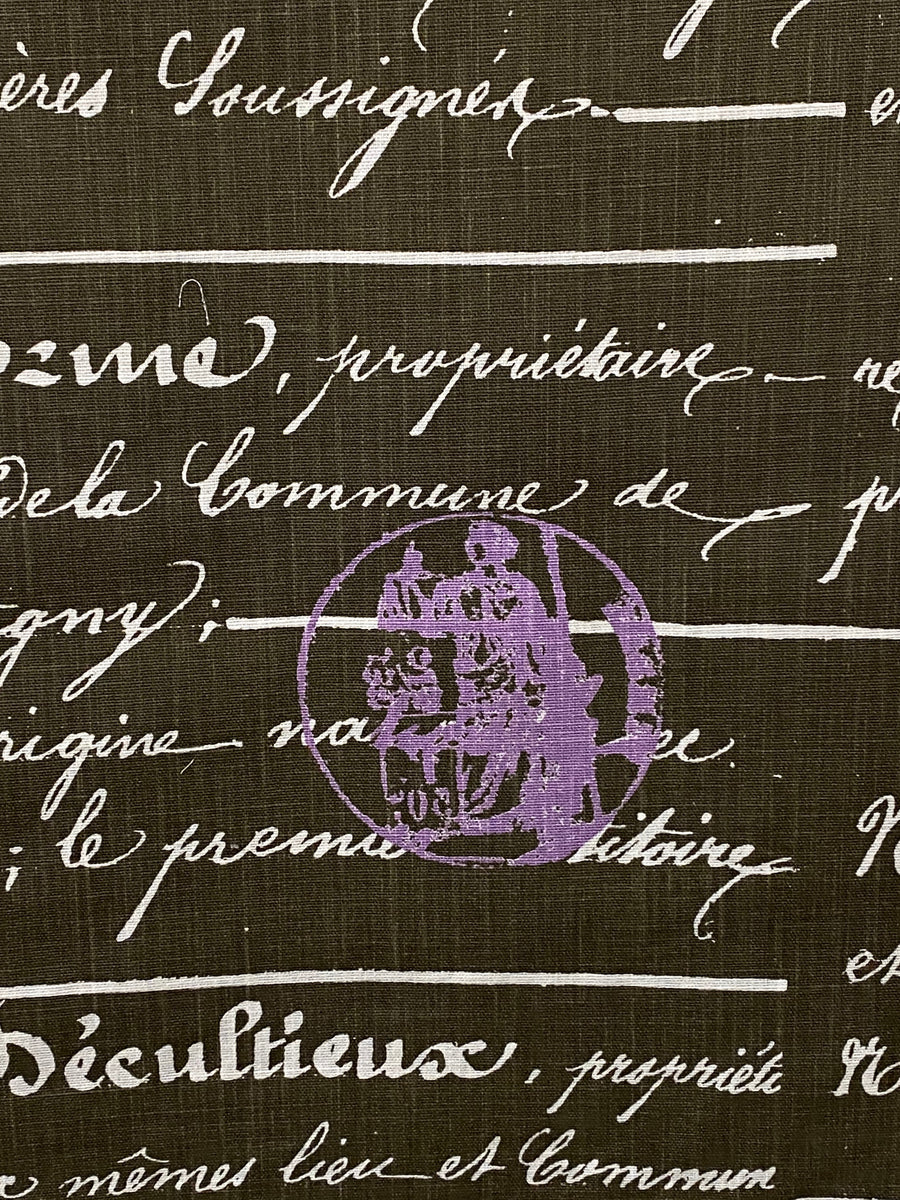 ères Soussignés
propriétaire
dela Commune de
gny;
rigine
; le premie titoire
Décultieux, propriéte
mêmes lieu et Commun